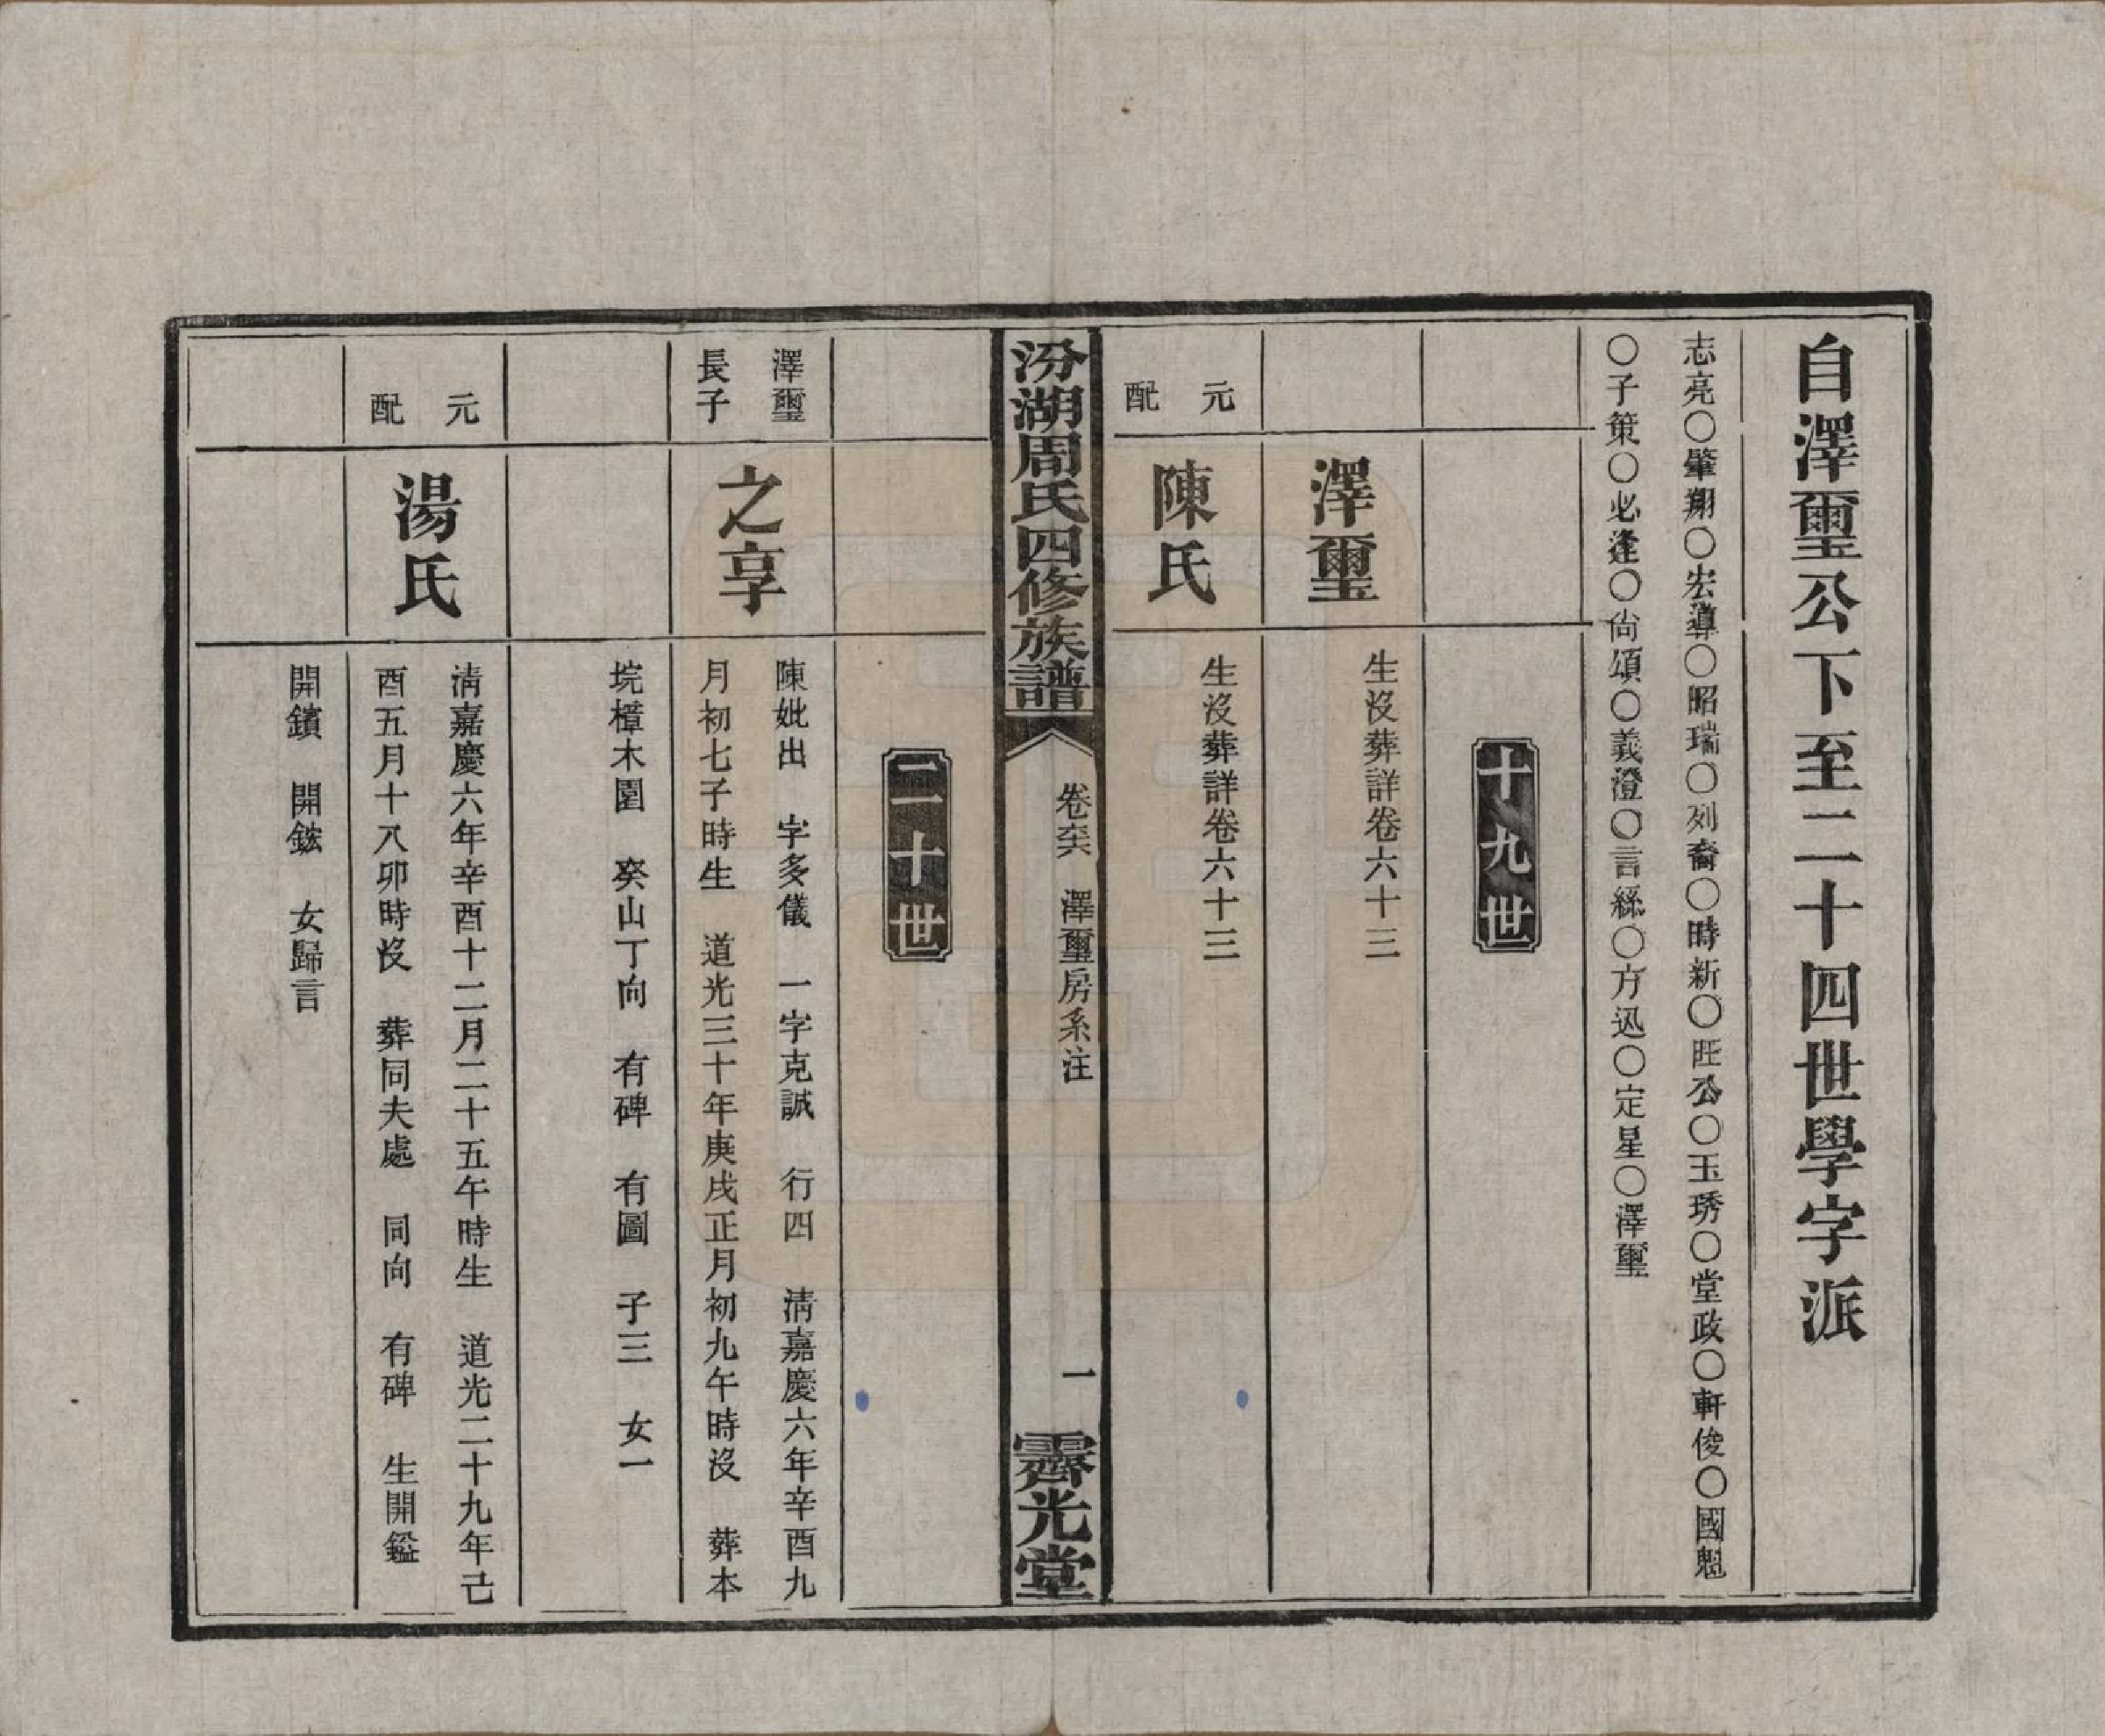 自澤璽公下至二十四世學字派
志亮○肇翔○宏導○昭瑞○列裔○時新○旺公○玉琇○堂政○軒俊○國魁
○子策○必逢○尙頌○義澄○言綵○方迅○定星○澤璽
十九世
澤璽
生沒葬詳卷六十三
元配
陳氏
生沒葬詳卷六十三
汾湖周氏四修族譜
卷六六 澤璽房系注
一
霽光堂
二十世
澤璽長子
之享
陳妣出 字多儀 一字克誠 行四 淸嘉慶六年辛酉九
月初七子時生 道光三十年庚戌正月初九午時沒 葬本
垸樟木園 癸山丁向 有碑 有圖 子三 女一
元配
湯氏
淸嘉慶六年辛酉十二月二十五午時生 道光二十九年己
酉五月十八卯時沒 葬同夫處 同向 有碑 生開鎰
開鑌 開鋐 女歸言